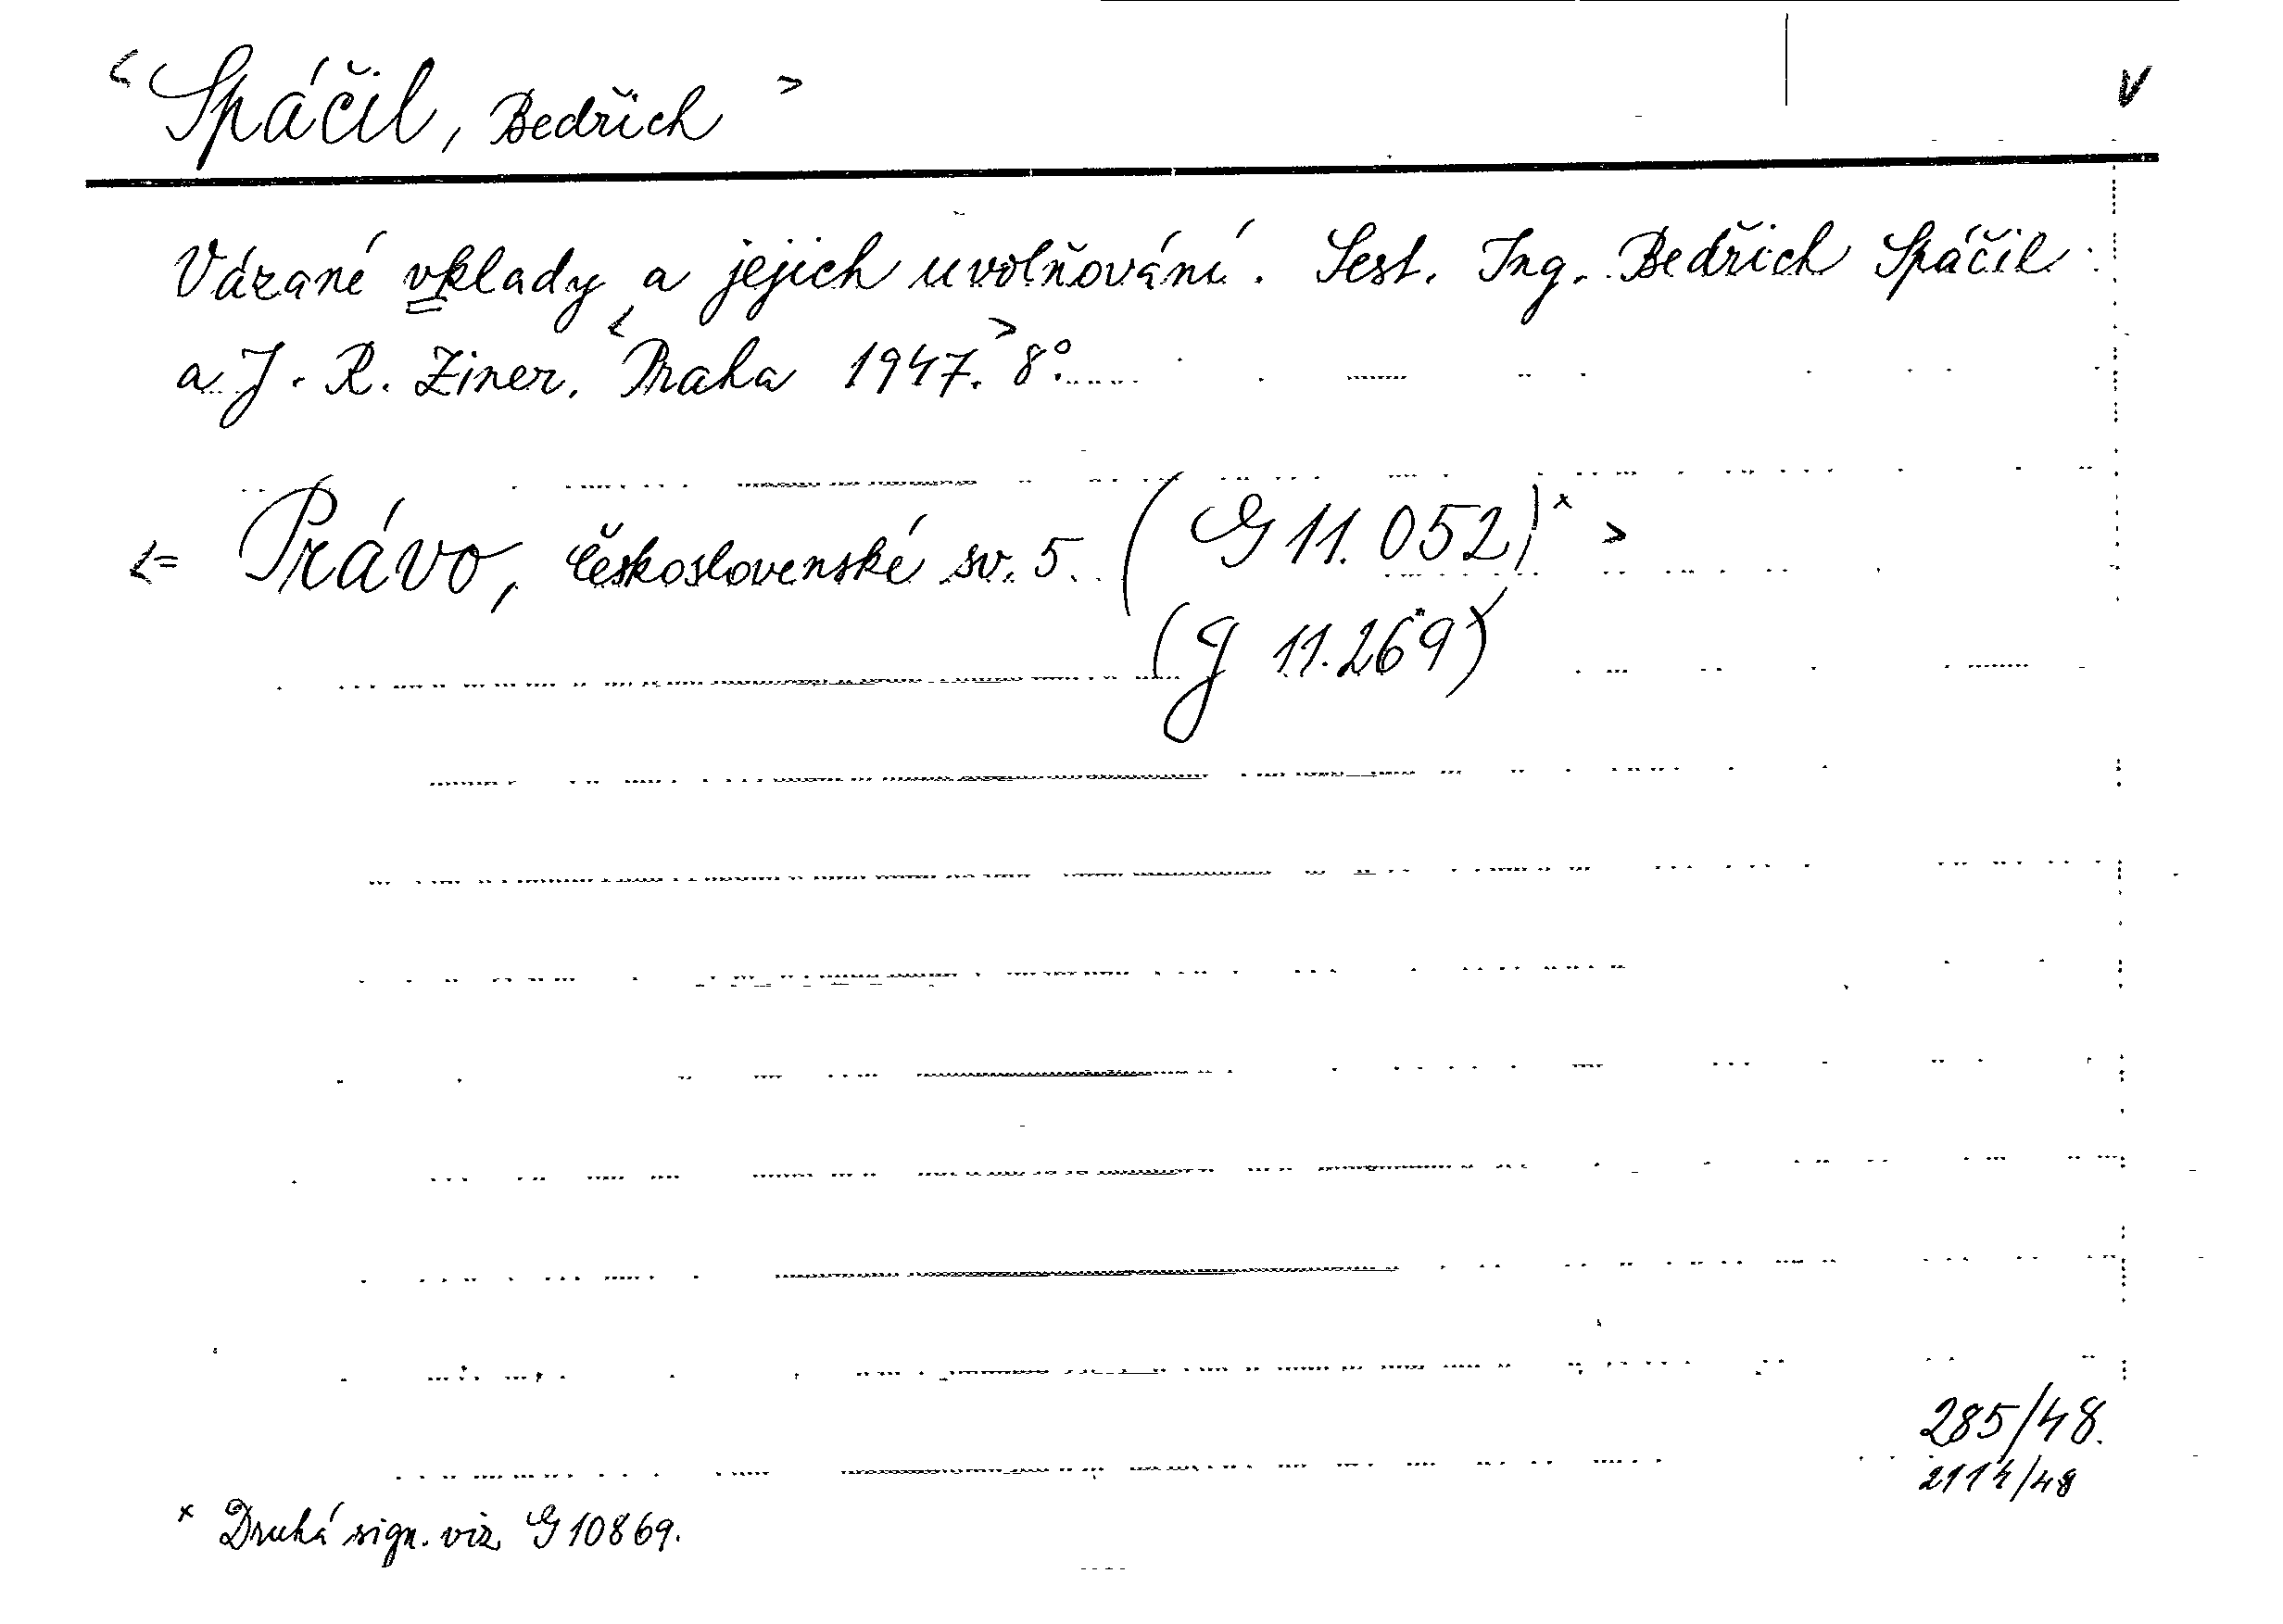 < Spáčil, Bedřich > V
Vázané vklady a jejich uvolňování. Sest. Ing. Bedřich Spáčil
a J. R. Ziner. <Praha 1947.> 8°.
<= Právo, československé sv. 5. (G 11.052)x >
(g 11.269)x
285/48.
2114/48
x Druhá sign. viz G 10869.